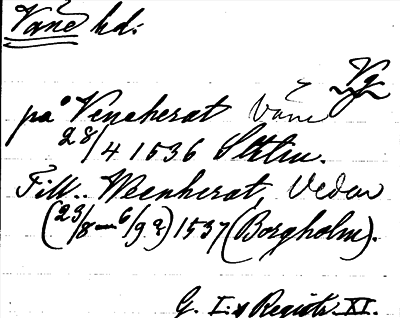 Våne hd:
Vg
på Veneherat Våne
28/4 1536 Sthlm.
Till.. Weenherat, Vedum
(23/8—6/9 ?) 1537 (Borgholm).
G. I:s Registr. XI.